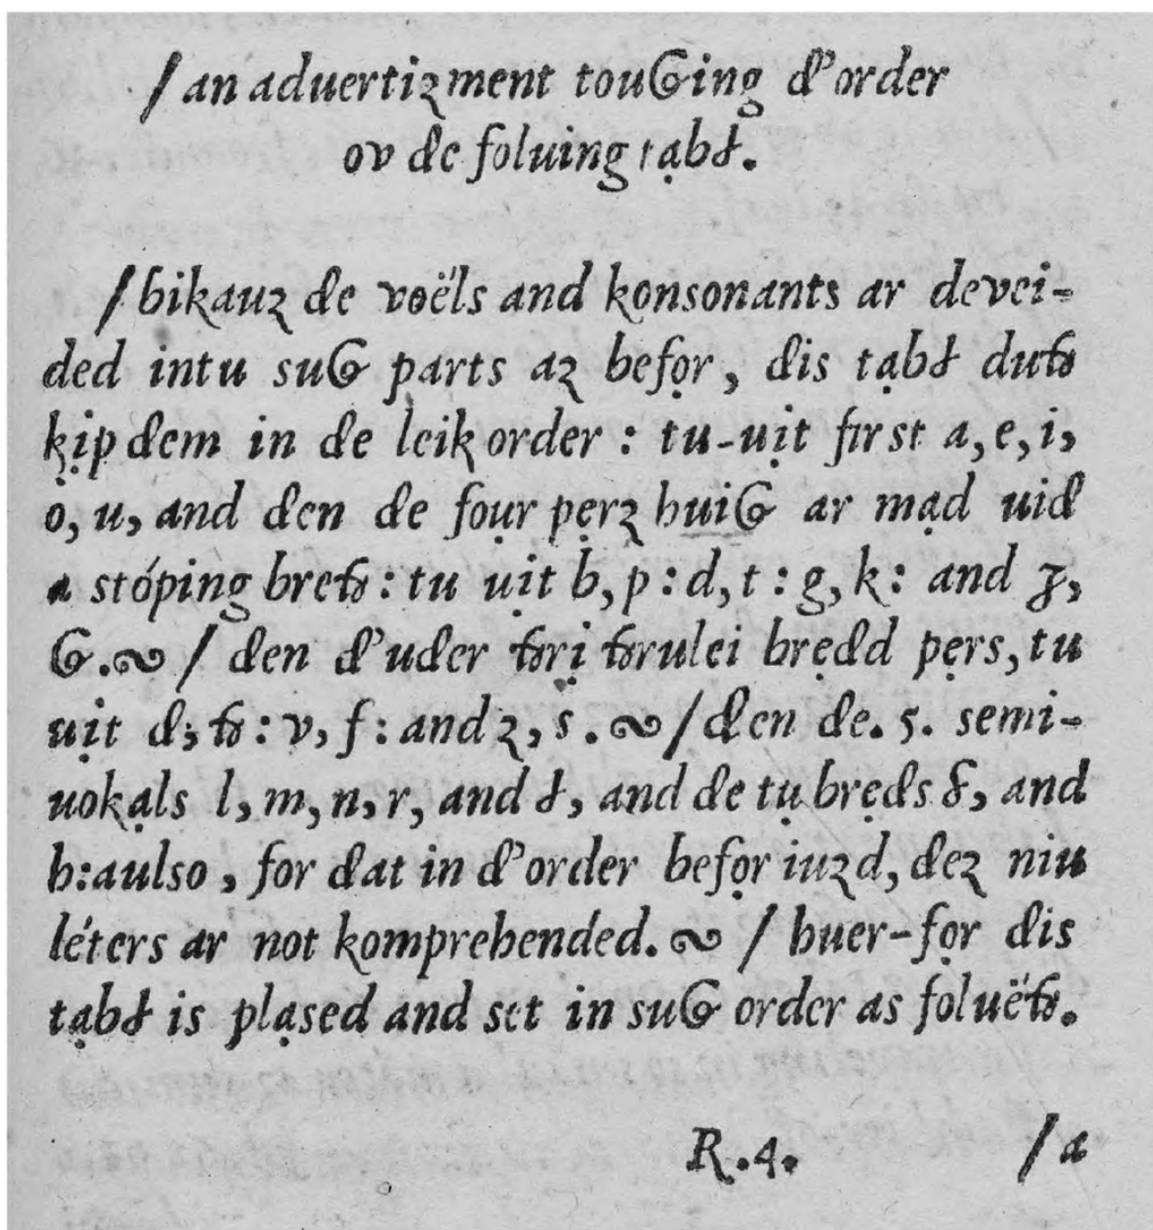 /an aduertiʒment touGing đ’order
ov đe foluing tạbł.
/bikauʒ đe voëls and konsonants ar devei-
ded intu suG parts aʒ befọr, đis tạbł duŧħ
kịp đem in đe leik order : tu-uịt first a, e, i,
o, u, and đen đe foụr pẹrʒ huiG ar mạd uiđ
a stóping breŧħ : tu uịt b, p : d, t : g, k : and ꝫ,
G.∾ / đen đ’uđer ŧħrị ŧħrulei brẹđd pẹrs, tu
uịt đ, ŧħ : v, f : and ʒ, s . ∾ / đen đe. 5. semi-
uokạls l, m, n, r, and ł, and đe tụ brẹđs ẜ, and
h:aulso , for đat in đ’order befọr iuʒd, đeʒ niu
léters ar not komprehended. ∾ / huer-fọr đis
tạbł is plạsed and set in suG order as foluëŧħ.
R.4. /a